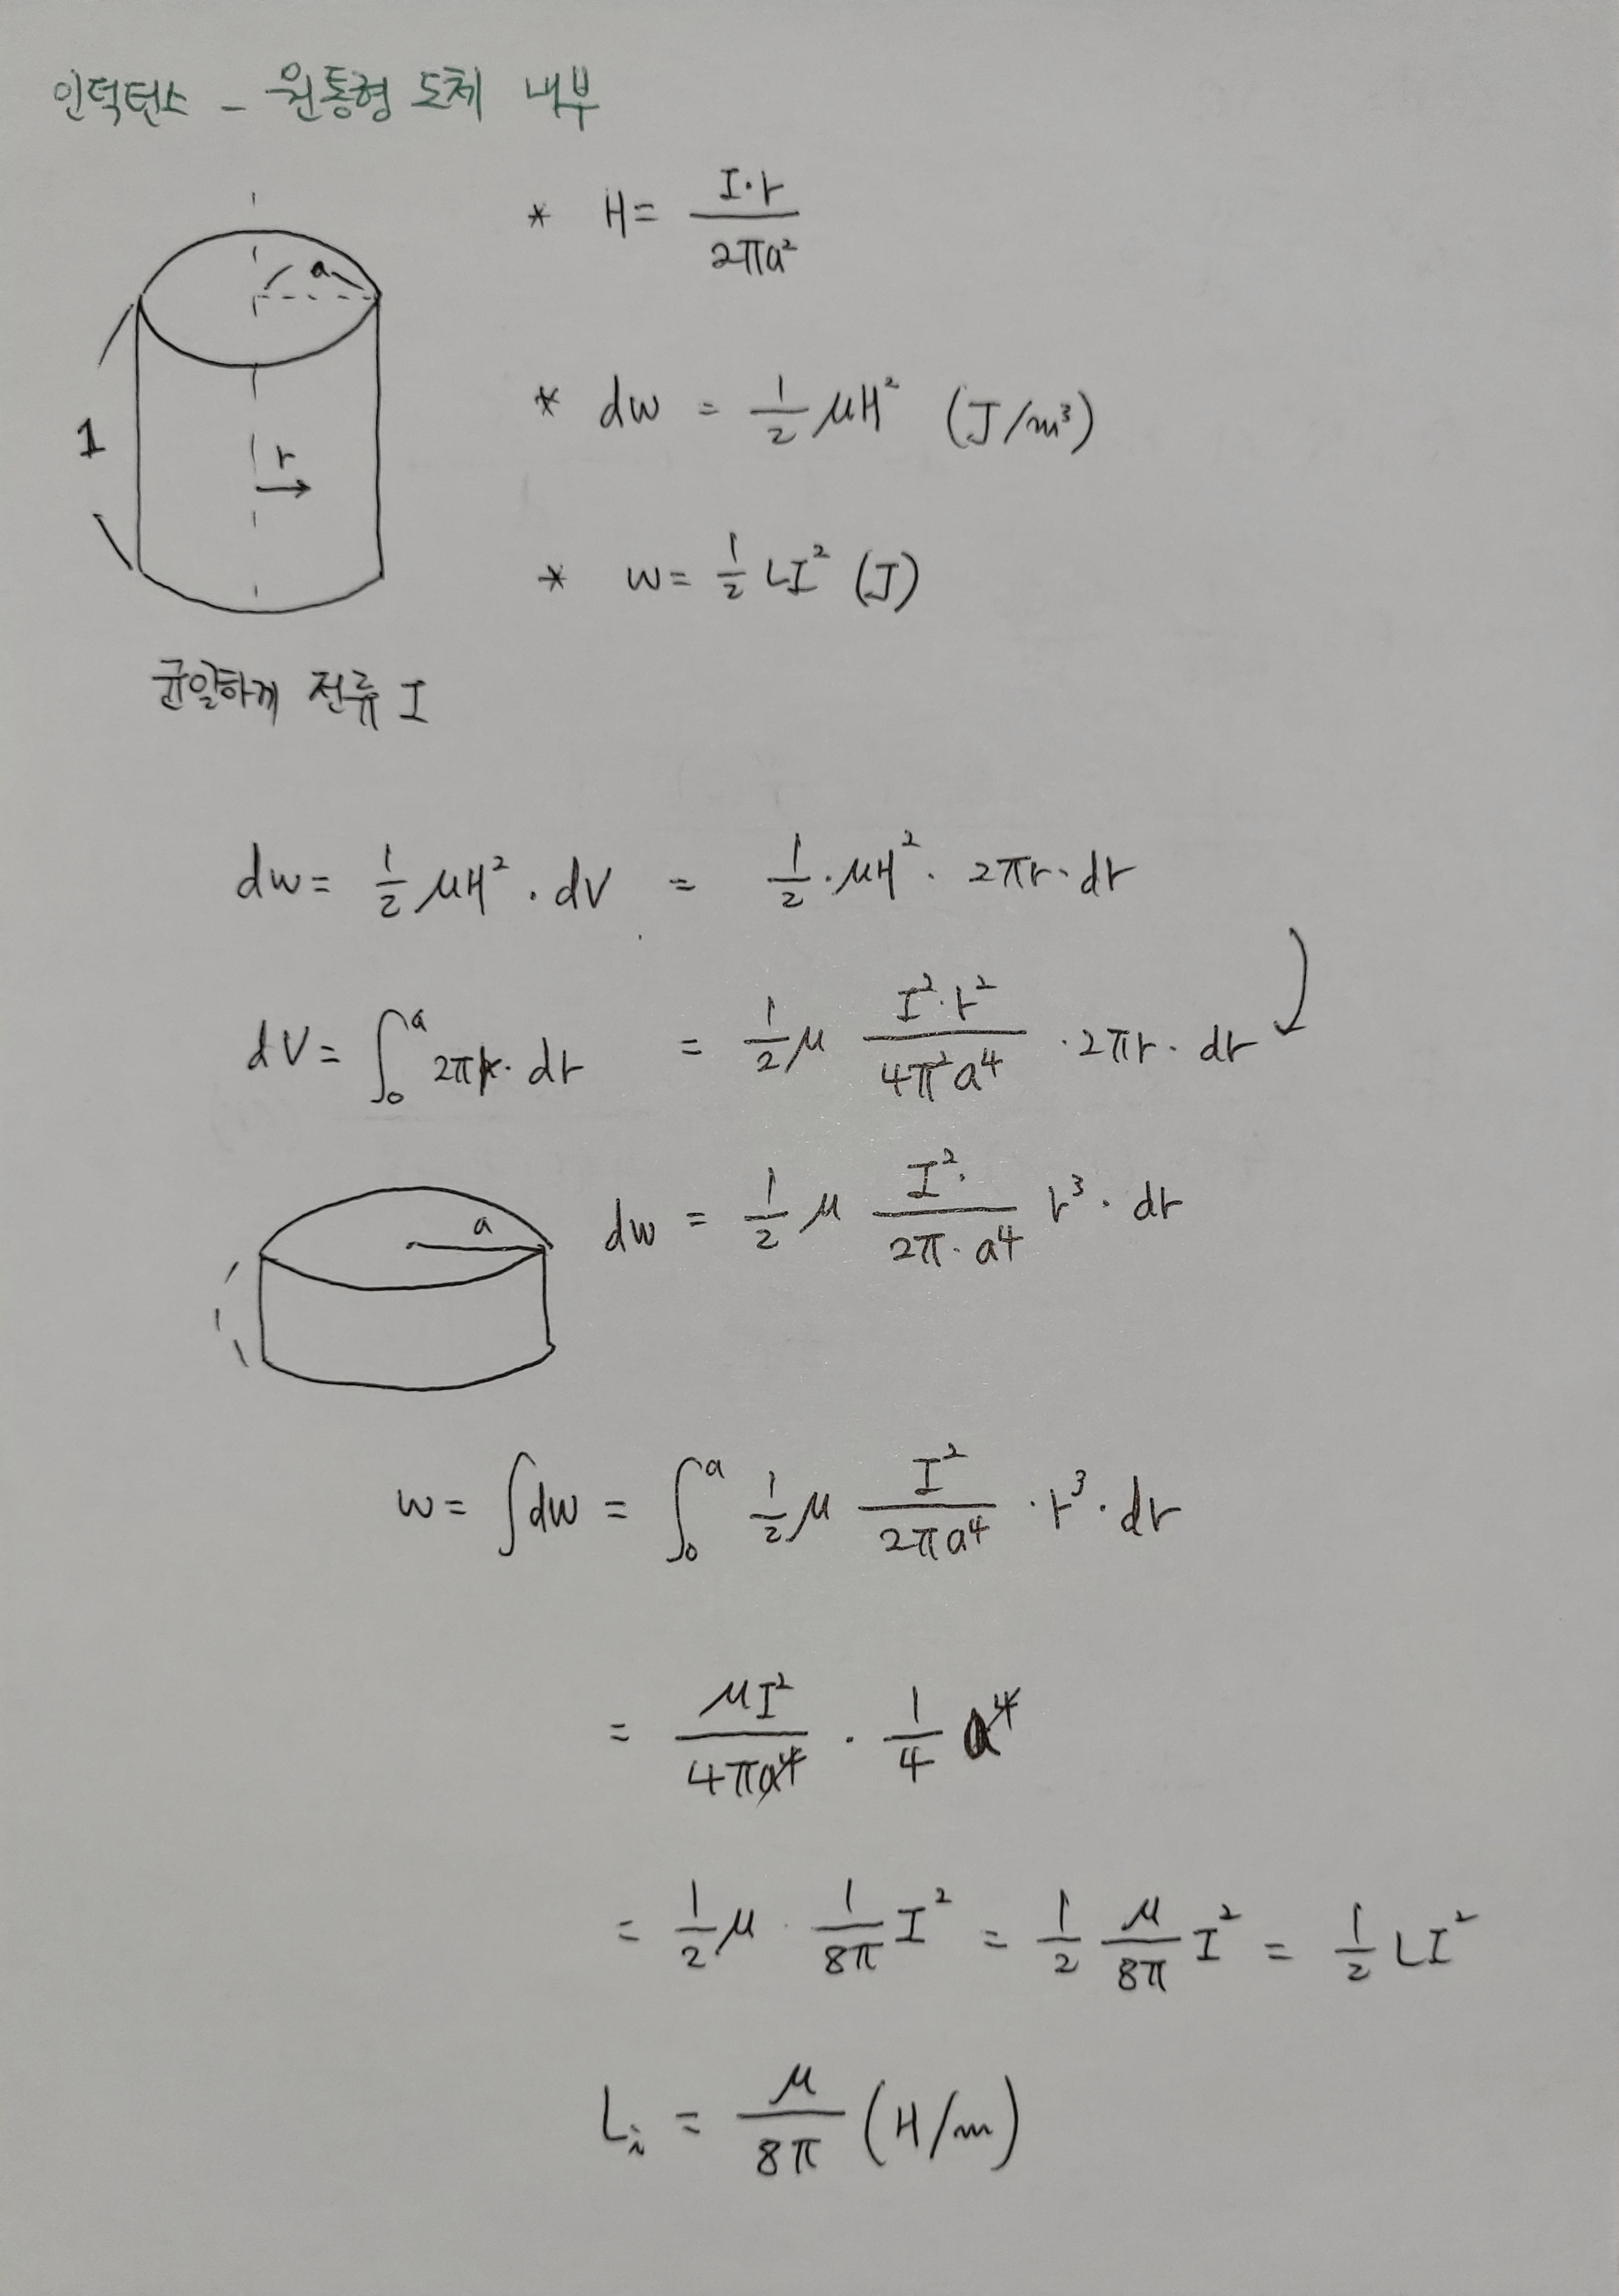 인덕턴스 - 원통형 도체 내부
* H = I·r / 2πa²
a
* dw = 1/2 μH² (J/m³)
1
r
* w = 1/2 LI² (J)
균일하게 전류 I
dw = 1/2 μH² · dV = 1/2 · μH² · 2πr · dr
dV = ∫₀ᵃ 2πr · dr = 1/2 μ I²·r² / 4π²a⁴ · 2πr · dr
a
1
dw = 1/2 μ I²· / 2π·a⁴ r³ · dr
w = ∫dw = ∫₀ᵃ 1/2 μ I² / 2πa⁴ · r³ · dr
= μI² / 4πa⁴ · 1/4 a⁴
= 1/2 μ · 1/8π I² = 1/2 μ/8π I² = 1/2 LI²
Lᵢ = μ / 8π (H/m)